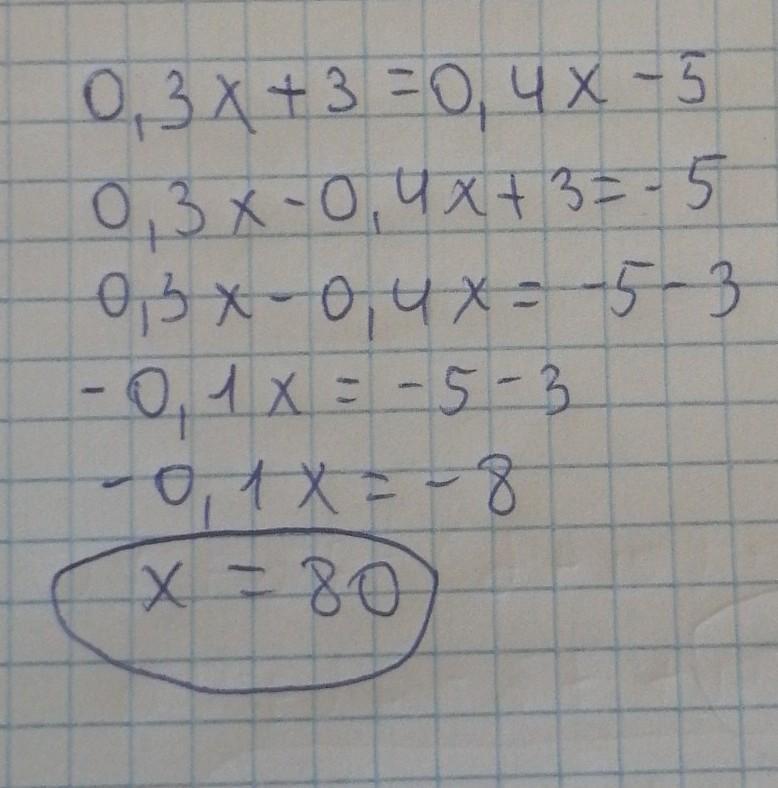 0,3x+3=0,4x-5
0,3x-0,4x+3=-5
0,3x-0,4x=-5-3
-0,1x=-5-3
-0,1x=-8
x=80